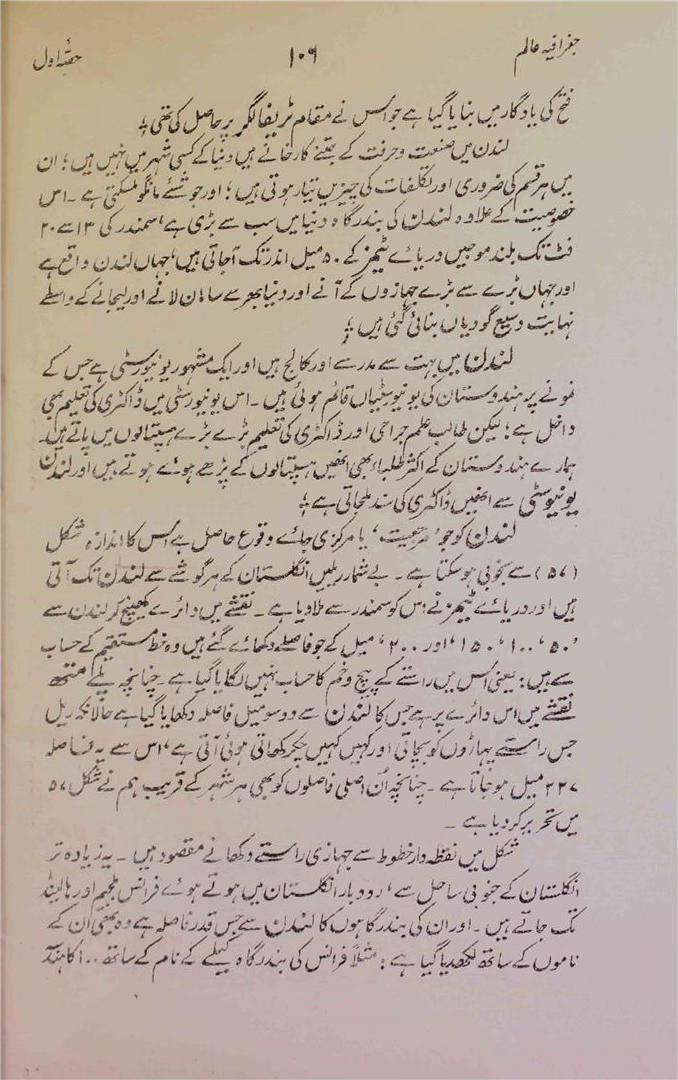 جغرافیہ عالم
۱۰۶
حصۂ اول
فتح کی یادگار میں بنایا گیا ہے جو اس نے مقام ٹریفالگر پر حاصل کی تھی ؛
لندن میں صنعت و حرفت کے جتنے کارخانے ہیں دنیا کے کسی شہر میں نہیں ہیں ؛ ان
میں ہر قسم کی ضروری اور تکلفات کی چیزیں تیار ہوتی ہیں ؛ اور جو شئے مانگو مل سکتی ہے ۔ اس
خصوصیت کے علاوہ لندن کی بندرگاہ دنیا میں سب سے بڑی ہے ‘ سمندر کی ۱۳ سے ۲۰
فٹ تک بلند موجیں دریاے ٹیمز کے ۵۰ میل اندر تک آجاتی ہیں ‘ جہاں لندن واقع ہے
اور جہاں بڑے سے بڑے جہازوں کے آنے اور دنیا بھر سے سامان لانے اور لیجانے کے واسطے
نہایت وسیع گودیاں بنائی گئی ہیں ؛
لندن میں بہت سے مدرسے اور کالج ہیں اور ایک مشہور یونیورسٹی ہے جس کے
نمونے پر ہندوستان کی یونیورسٹیاں قائم ہوئی ہیں ۔ اس یونیورسٹی میں ڈاکٹری کی تعلیم بھی
داخل ہے ؛ لیکن طالب علم جراحی اور ڈاکٹری کی تعلیم بڑے بڑے ہسپتالوں میں پاتے ہیں۔
ہمارے ہندوستان کے اکثر طلباء بھی انھیں ہسپتالوں کے پڑھے ہوے ہوتے ہیں اور لندن
یونیوسٹی سے انھیں ڈاکٹری کی سند ملجاتی ہے ؛
لندن کو جو ’ مرجعیت ‘ یا مرکزی جاے وقوع حاصل ہے اس کا اندازہ شکل
(۵۷) سے بخوبی ہو سکتا ہے ۔ بے شمار ریلیں انگلستان کے ہر گوشے سے لندن تک آتی
ہیں اور دریاے ٹیمز نے اس کو سمندر سے ملا دیا ہے ۔ نقشے میں دائرے کھینچ کر لندن سے
’ ۵۰ ‘ ۱۰۰ ‘ ۱۵۰ ‘ اور ۲۰۰ ‘ میل کے جو فاصلے دکھائے گئے ہیں وہ خط مستقیم کے حساب
سے ہیں : یعنی اس میں راستے کے پیچ و خم کا حساب نہیں لگایا گیا ہے ۔ چنانچہ پلے متھ
نقشے میں اس دائرے پر ہے جس کا لندن سے دو سو میل فاصلہ دکھایا گیا ہے حالانکہ ریل
جس راستے پہاڑوں کو بچاتی اور کہیں کہیں چکر کھاتی ہوئی آتی ہے ‘ اس سے یہ فاصلہ
۲۲۷ میل ہو جاتا ہے ۔ چنانچہ اُن اصلی فاصلوں کو بھی ہر شہر کے قریب ہم نے شکل ۵۷
میں تحریر کردیا ہے ۔
شکل میں نقطہ دار خطوط سے جہازی راستے دکھانے مقصود ہیں ۔ یہ زیادہ تر
انگلستان کے جنوبی ساحل سے ‘ رودبار انگلستان میں ہوتے ہوے فرانس بلجیم اور ہالینڈ
تک جاتے ہیں ۔ اور ان کی بندرگاہوں کا لندن سے جس قدر فاصلہ ہے وہ بھی ان کے
ناموں کے ساتھ لکھدیا گیا ہے : مثلاً فرانس کی بندرگاہ کیلے کے نام کے ساتھ ۱۰۰ کا ہندسہ